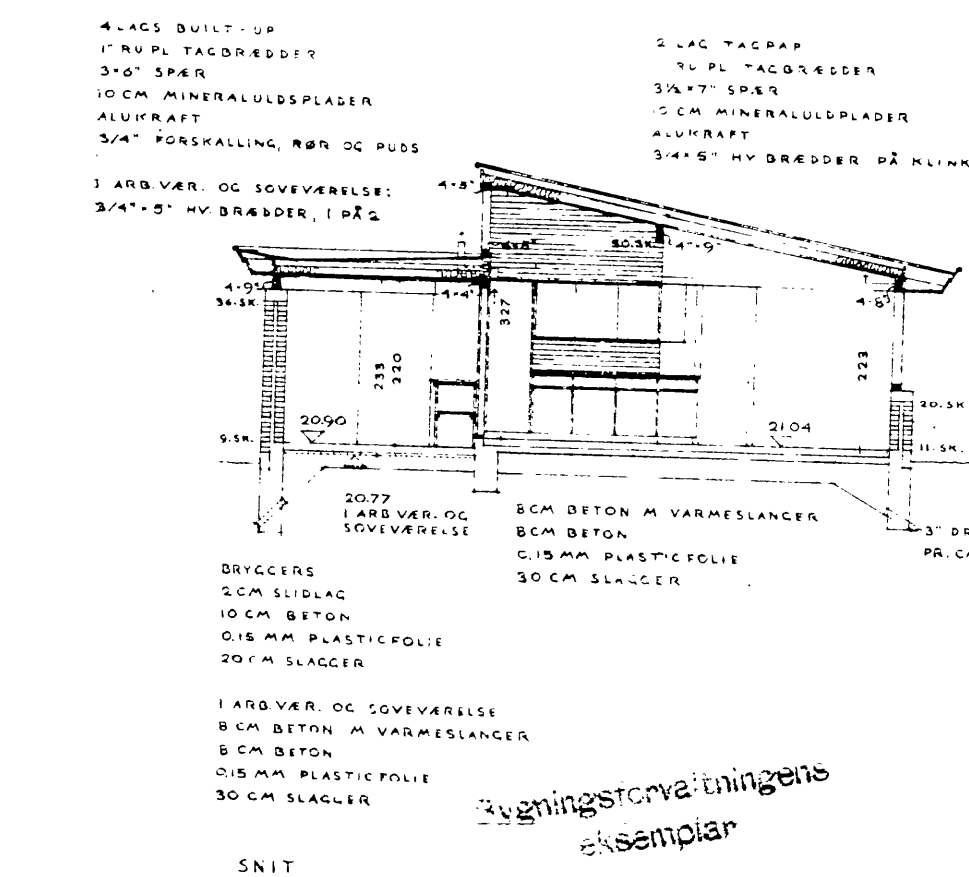 4 LAGS BUILT-UP
1" RU PL TAGBRÆDDER
3×6" SPÆR
10 CM MINERALULDSPLADER
ALUKRAFT
3/4" FORSKALLING, RØR OG PUDS
I ARB.VÆR. OG SOVEVÆRELSE:
3/4"×5" HV. BRÆDDER, 1 PÅ 2
2 LAG TAGPAP
RU PL TAGBRÆDDER
3½×7" SPÆR
10 CM MINERALULDPLADER
ALUKRAFT
3/4×5" HV BRÆDDER PÅ KLINK
4×5"
4×8"
50.SK.
4"×9"
4×9"
36.SK.
4×4"
327
4×8"
233
220
223
20.90
21.04
20.SK
9.SK.
11.SK.
20.77
I ARB VÆR. OG
SOVEVÆRELSE
8CM BETON M VARMESLANGER
8CM BETON
0,15 MM PLASTICFOLIE
30 CM SLAGGER
3" DR
PR. CA
BRYGGERS
2CM SLIDLAG
10 CM BETON
0,15 MM PLASTICFOLIE
20 CM SLAGGER
I ARB.VÆR. OG SOVEVÆRELSE
8 CM BETON M VARMESLANGER
8 CM BETON
0,15 MM PLASTICFOLIE
30 CM SLAGGER
Bygningsforvaltningens
eksemplar
SNIT